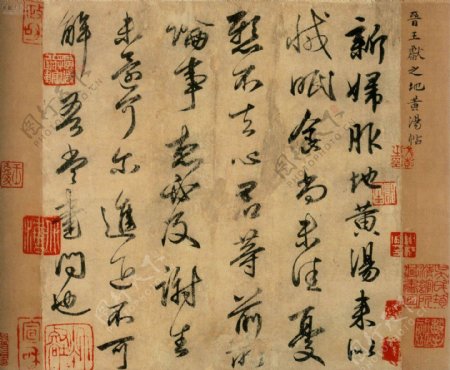 晉王獻之地黃湯帖
新婦服地黃湯來似
減眠食尚未佳憂
懸不去心君等前所
論事想必及謝生
未還可尔進退不可
解吾當書問也